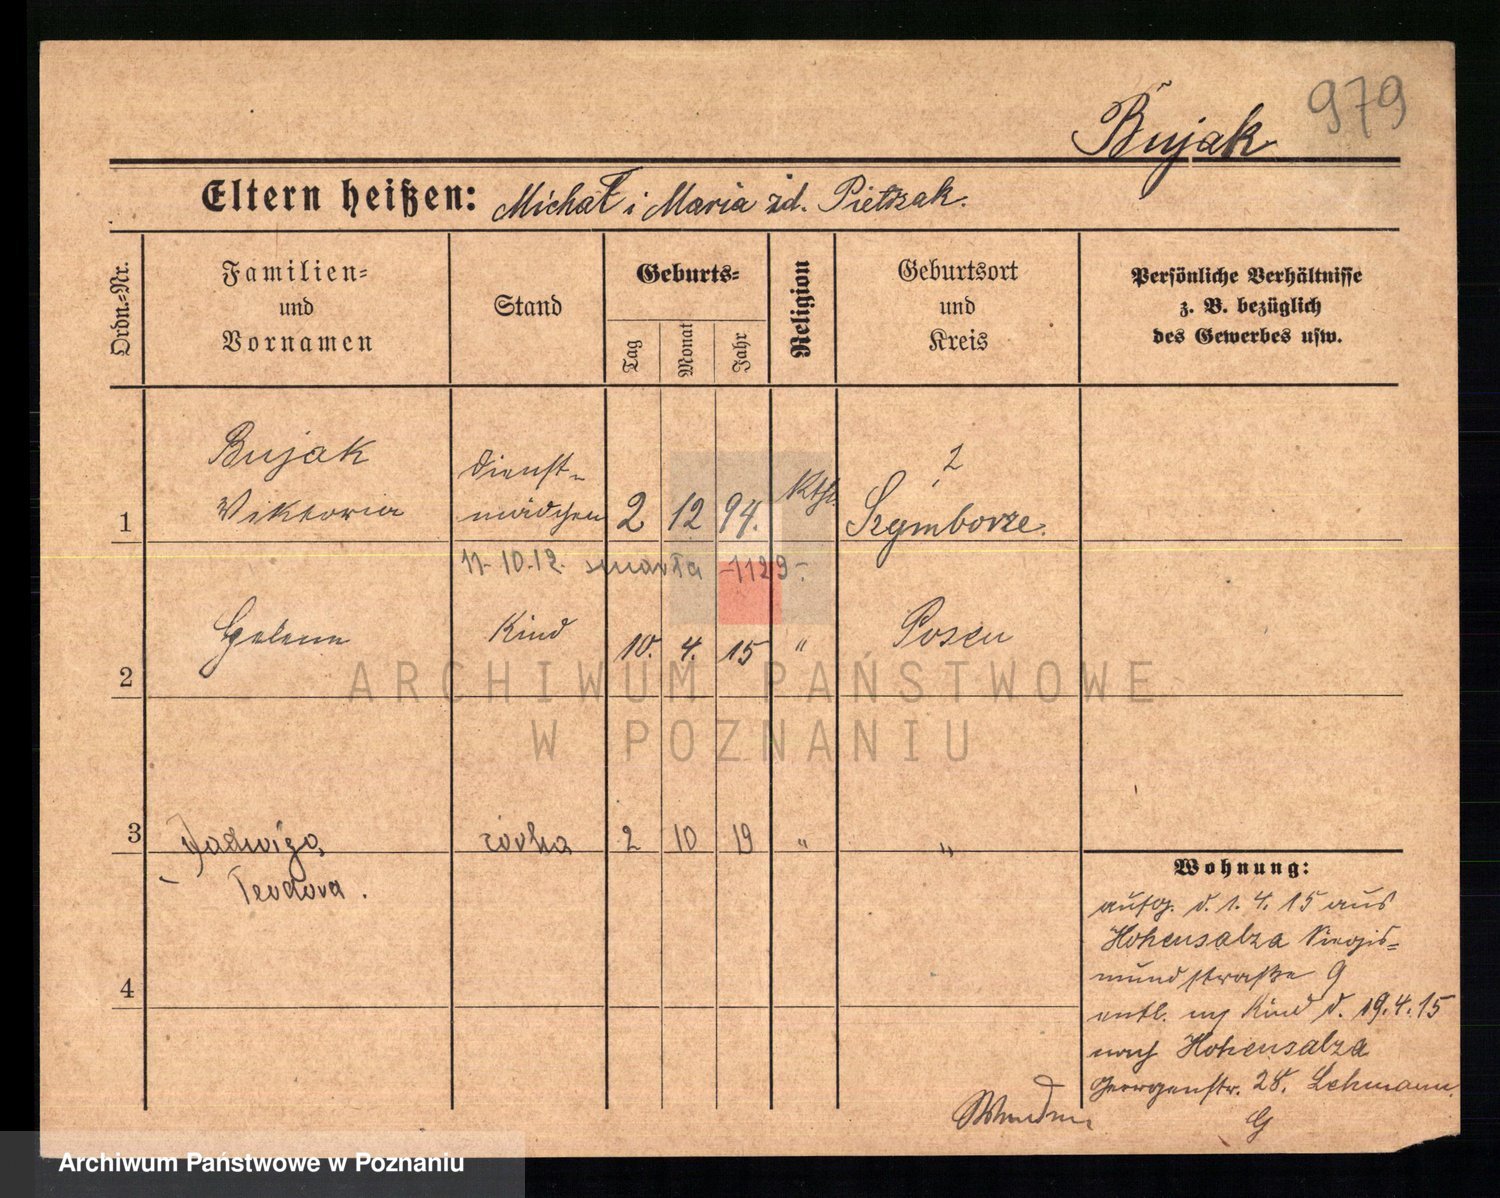 979
Bujak
Eltern heißen: Michał i Maria zd. Pietrzak.
Ordn.=Nr.
Familien=
und
Vornamen
Stand
Geburts=
Tag
Monat
Jahr
Religion
Geburtsort
und
Kreis
Persönliche Verhältnisse
z. B. bezüglich
des Gewerbes usw.
Bujak
Viktoria
Dienst-
mädchen
1
2
12
94.
Kth.
2
Szymborze.
11-10.12. umarła -1129-
2
Helene
Kind
10.
4.
15
"
Posen
ARCHIWUM PAŃSTWOWE
W POZNANIU
3
Jadwiga
córka
2
10
19
"
"
Teodora.
4
Wohnung:
aufg. d. 1. 4. 15 aus
Hohensalza Siegis=
mundstraße 9
entl. m Kind d. 19.4.15
nach Hohensalza
Georgenstr. 28. Lehmann.
G
Archiwum Państwowe w Poznaniu